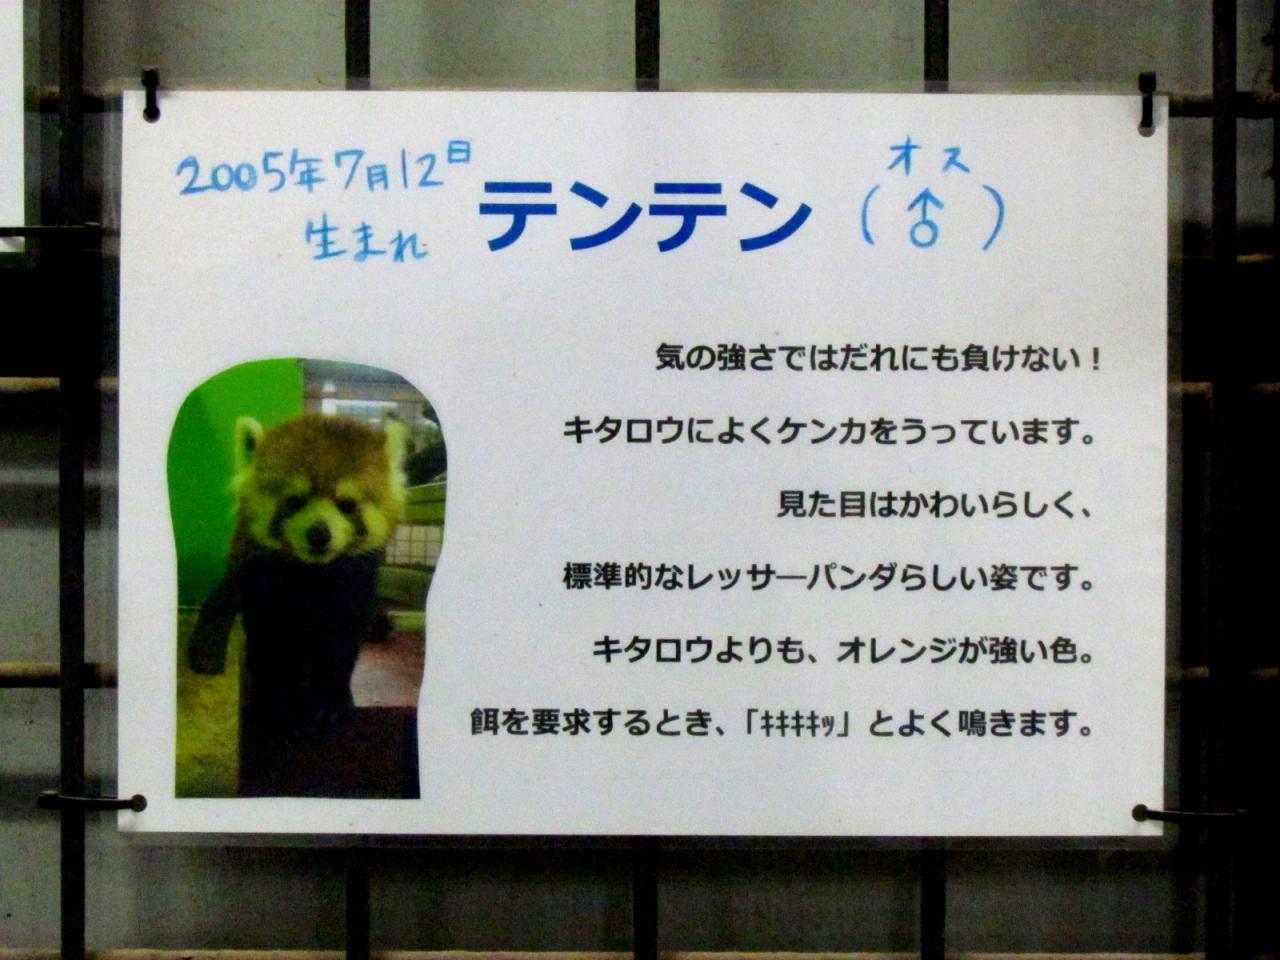 2005年7月12日
生まれ
テンテン
オス
(♂)
気の強さではだれにも負けない！
キタロウによくケンカをうっています。
見た目はかわいらしく、
標準的なレッサーパンダらしい姿です。
キタロウよりも、オレンジが強い色。
餌を要求するとき、「ｷｷｷｷｯ」とよく鳴きます。